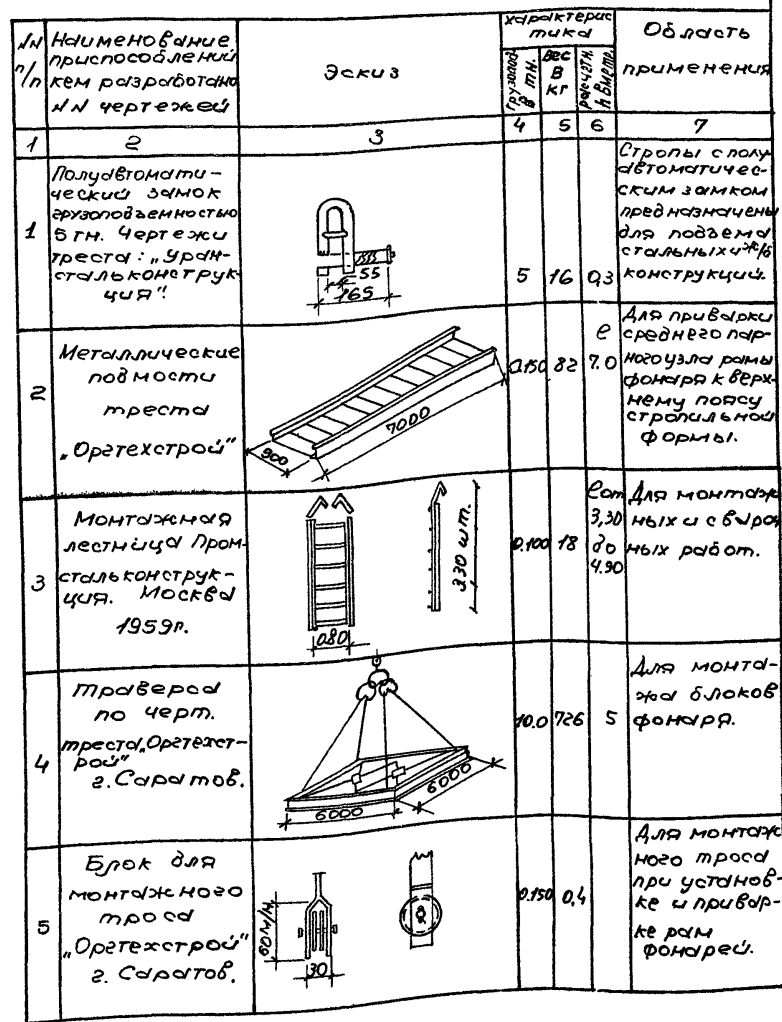 NN
п/п
Наименование
приспособлений
кем разработано
NN чертежей
Эскиз
характерис
тика
грузопод.
в тн.
вес
в
кг
расчетн.
h в мете.
Область
применения
1
2
3
4
5
6
7
1
Полуавтомати-
ческий замок
грузоподъемностью
5 тн. Чертежи
треста: „Урал-
стальконструк-
ция".
55
165
5
16
0,3
Стропы с полу
автоматичес-
ским замком
предназначены
для подъема
стальных и ж/б
конструкций.
2
Металлические
подмости
треста
„Оргтехстрой"
900
7000
0.150
82
е
7.0
Для приварки
среднего пар-
ного узла рамы
фонаря к верх-
нему поясу
стропильной
формы.
3
Монтажная
лестница Пром-
стальконструк-
ция. Москва
1959г.
080
330 шт.
0.100
18
е от
3,30
до
4.90
Для монтаж
ных и сваро
ных работ.
4
Траверса
по черт.
треста „Оргтехст-
рой"
г. Саратов.
6000
6000
10.0
726
5
Для монта-
жа блоков
фонаря.
5
Блок для
монтажного
троса
„Оргтехстрой"
г. Саратов.
60 м/м.
30
0.150
0,4
Для монтаж
ного троса
при установ-
ке и привар-
ке рам
фонарей.